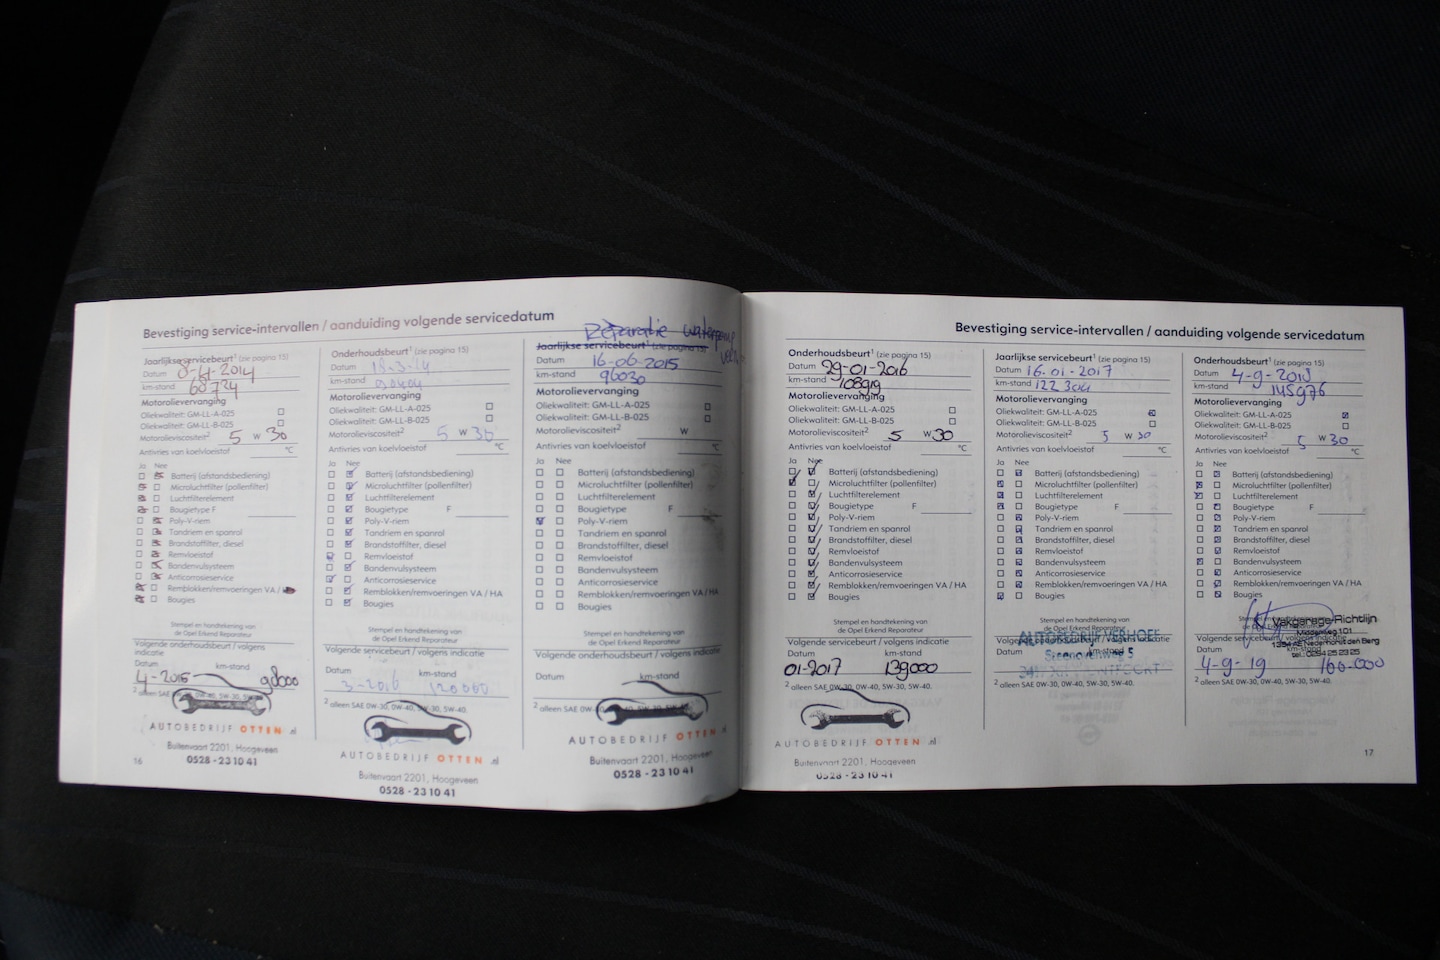 Bevestiging service-intervallen / aanduiding volgende servicedatum
Jaarlijkse servicebeurt¹ (zie pagina 15)
Datum
km-stand 68734
Motorolievervanging
Oliekwaliteit: GM-LL-A-025
Oliekwaliteit: GM-LL-B-025
Motorolieviscositeit² 5 W 30
Antivries van koelvloeistof °C
Ja Nee
Batterij (afstandsbediening)
Microluchtfilter (pollenfilter)
Luchtfilterelement
Bougietype F
Poly-V-riem
Tandriem en spanrol
Brandstoffilter, diesel
Remvloeistof
Bandenvulsysteem
Anticorrosieservice
Remblokken/remvoeringen VA /
Bougies
Stempel en handtekening van
de Opel Erkend Reparateur
Volgende onderhoudsbeurt / volgens
indicatie
Datum km-stand
4-2015 98000
² alleen SAE 0W-30, 0W-40, 5W-30, 5W-
AUTOBEDRIJF OTTEN .nl
Buitenvaart 2201, Hoogeveen
0528 - 23 10 41
16
Onderhoudsbeurt¹ (zie pagina 15)
Datum 18-3-14
km-stand
Motorolievervanging
Oliekwaliteit: GM-LL-A-025
Oliekwaliteit: GM-LL-B-025
Motorolieviscositeit² 5 W 30
Antivries van koelvloeistof °C
Ja Nee
Batterij (afstandsbediening)
Microluchtfilter (pollenfilter)
Luchtfilterelement
Bougietype F
Poly-V-riem
Tandriem en spanrol
Brandstoffilter, diesel
Remvloeistof
Bandenvulsysteem
Anticorrosieservice
Remblokken/remvoeringen VA / HA
Bougies
Stempel en handtekening van
de Opel Erkend Reparateur
Volgende servicebeurt / volgens indicatie
Datum km-stand
3-2016 120000
² alleen SAE 0W-30, 0W-40, 5W-30, 5W-40.
AUTOBEDRIJF OTTEN .nl
Buitenvaart 2201, Hoogeveen
0528 - 23 10 41
Reparatie waterpomp
Jaarlijkse servicebeurt¹ (zie pagina 15)
Datum 16-06-2015
km-stand 96030
Motorolievervanging
Oliekwaliteit: GM-LL-A-025
Oliekwaliteit: GM-LL-B-025
Motorolieviscositeit² W
Antivries van koelvloeistof °C
Ja Nee
Batterij (afstandsbediening)
Microluchtfilter (pollenfilter)
Luchtfilterelement
Bougietype F
Poly-V-riem
Tandriem en spanrol
Brandstoffilter, diesel
Remvloeistof
Bandenvulsysteem
Anticorrosieservice
Remblokken/remvoeringen VA / HA
Bougies
Stempel en handtekening van
de Opel Erkend Reparateur
Volgende onderhoudsbeurt / volgens indicatie
Datum km-stand
² alleen SAE 0W-30, 0W-40, 5W-30, 5W-40.
AUTOBEDRIJF OTTEN .nl
Buitenvaart 2201, Hoogeveen
0528 - 23 10 41
Bevestiging service-intervallen / aanduiding volgende servicedatum
Onderhoudsbeurt¹ (zie pagina 15)
Datum 29-01-2016
km-stand 108919
Motorolievervanging
Oliekwaliteit: GM-LL-A-025
Oliekwaliteit: GM-LL-B-025
Motorolieviscositeit² 5 W 30
Antivries van koelvloeistof °C
Ja Nee
Batterij (afstandsbediening)
Microluchtfilter (pollenfilter)
Luchtfilterelement
Bougietype F
Poly-V-riem
Tandriem en spanrol
Brandstoffilter, diesel
Remvloeistof
Bandenvulsysteem
Anticorrosieservice
Remblokken/remvoeringen VA / HA
Bougies
Stempel en handtekening van
de Opel Erkend Reparateur
Volgende servicebeurt / volgens indicatie
Datum km-stand
01-2017 139000
² alleen SAE 0W-30, 0W-40, 5W-30, 5W-40.
AUTOBEDRIJF OTTEN .nl
Buitenvaart 2201, Hoogeveen
0528 - 23 10 41
Jaarlijkse servicebeurt¹ (zie pagina 15)
Datum 16-01-2017
km-stand 122304
Motorolievervanging
Oliekwaliteit: GM-LL-A-025
Oliekwaliteit: GM-LL-B-025
Motorolieviscositeit² 5 W 30
Antivries van koelvloeistof °C
Ja Nee
Batterij (afstandsbediening)
Microluchtfilter (pollenfilter)
Luchtfilterelement
Bougietype F
Poly-V-riem
Tandriem en spanrol
Brandstoffilter, diesel
Remvloeistof
Bandenvulsysteem
Anticorrosieservice
Remblokken/remvoeringen VA / HA
Bougies
Stempel en handtekening van
de Opel Erkend Reparateur
AUTOBEDRIJF VERHOEF
Volgende onderhoudsbeurt / volgens indicatie
Datum km-stand
² alleen SAE 0W-30, 0W-40, 5W-30, 5W-40.
Onderhoudsbeurt¹ (zie pagina 15)
Datum 4-9-2018
km-stand 145976
Motorolievervanging
Oliekwaliteit: GM-LL-A-025
Oliekwaliteit: GM-LL-B-025
Motorolieviscositeit² 5 W 30
Antivries van koelvloeistof °C
Ja Nee
Batterij (afstandsbediening)
Microluchtfilter (pollenfilter)
Luchtfilterelement
Bougietype F
Poly-V-riem
Tandriem en spanrol
Brandstoffilter, diesel
Remvloeistof
Bandenvulsysteem
Anticorrosieservice
Remblokken/remvoeringen VA / HA
Bougies
Vakgarage Richtlijn
Middenweg 101
Nederhorst den Berg
Volgende servicebeurt / volgens
Datum km-stand
4-9-19 160.000
² alleen SAE 0W-30, 0W-40, 5W-30, 5W-40.
17